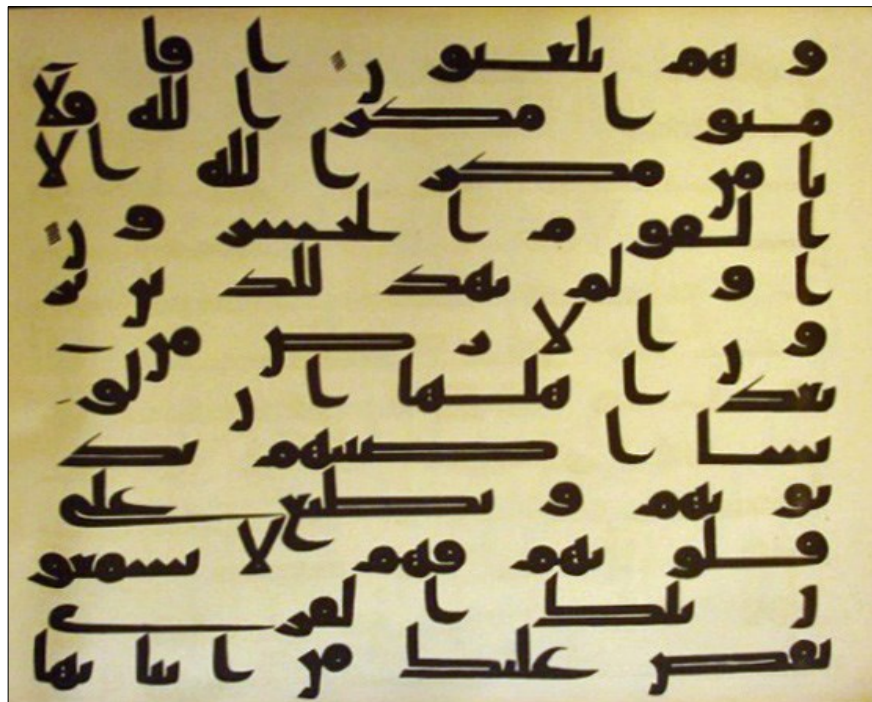 وهم يلعبون افا
منوا مكر الله فلا
يامن مكر الله الا
القوم الخسرون
اولم يهد للذين يرث
ون الارض من
بعد اهلها ان لو
نشا اصبنهم بذ
نوبهم ونطبع على
قلوبهم فهم لا يسمعو
ن تلك القرى
نقص عليك من انبائها